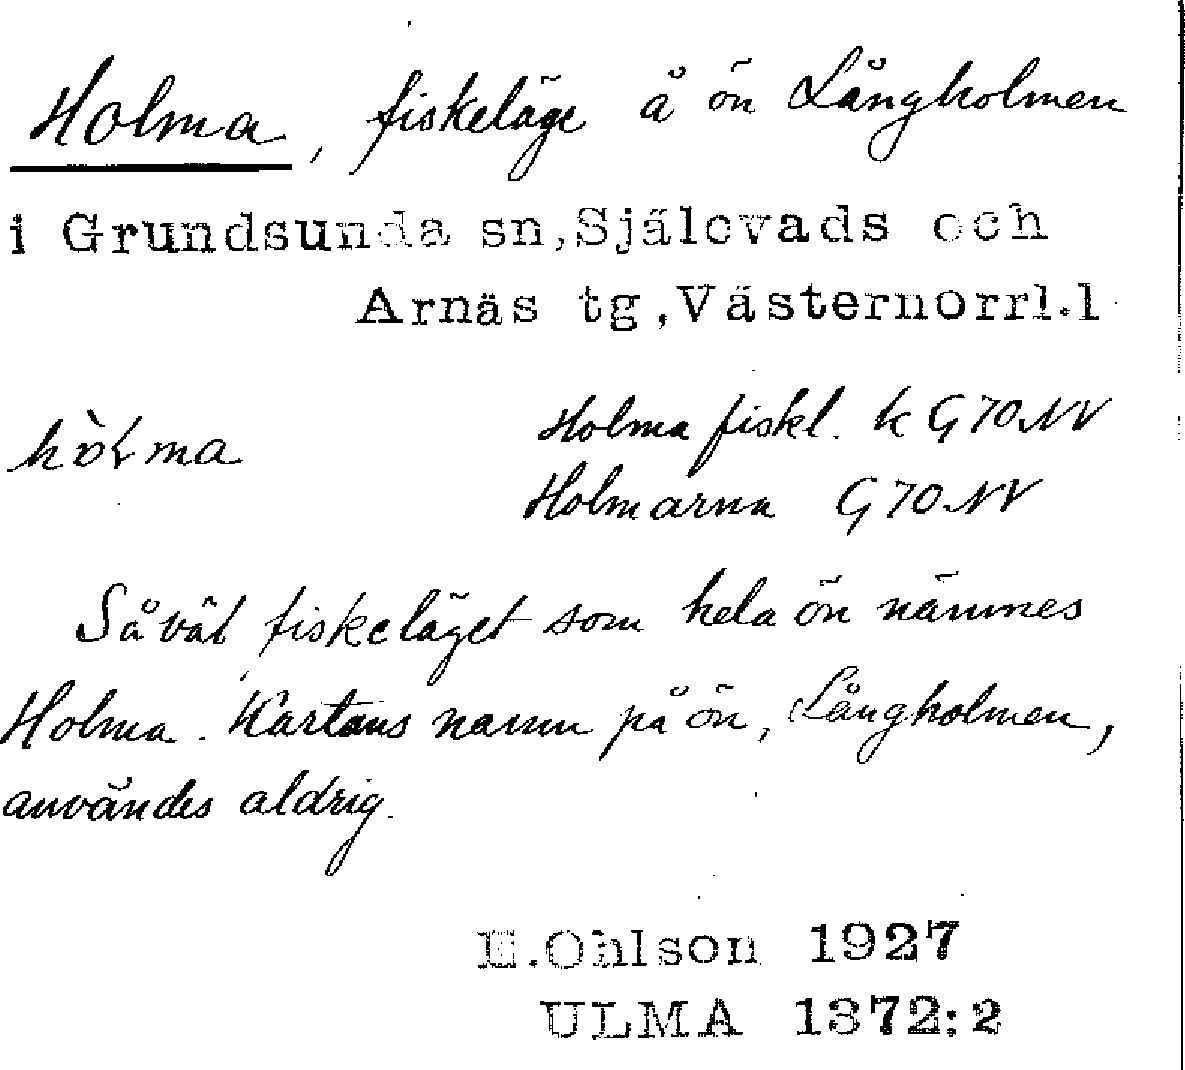 Holma, fiskeläge å ön Långholmen
i Grundsunda sn, Själevads och
Arnäs tg, Västernorrl.l
Holma fiskl. k G70NV
Holmarna G70NV
Såväl fiskeläget som hela ön nämnes
Holma. Kartans namn på ön, Långholmen,
användes aldrig.
Ohlson 1927
ULMA 1372:2